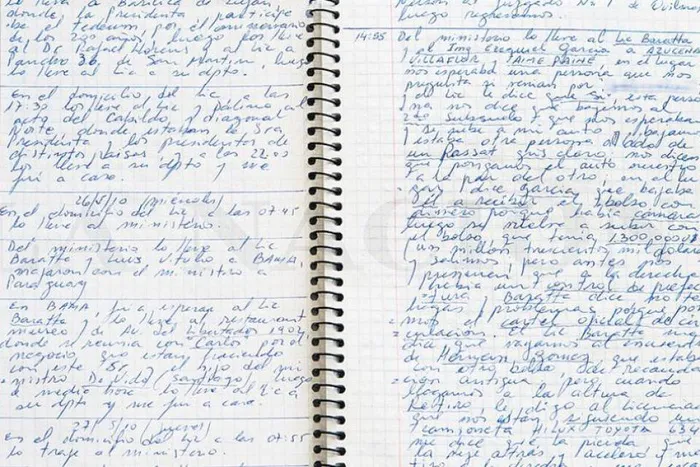 lo lleve a Basilica de Lujan,
donde la Presidenta participó
de el Tedeum por el aniversario
de los 200 años, y luego por lleve
al Dr. Rafael y al Lic a
36, de San Martin, luego
lo lleve al Lic a su dpto.
En el domicilio del Lic, a las
17:30 los lleve al Lic y al
acto del Cabildo, y diagonal
Norte donde estaban la Sra
Presidenta, y los presidentes de
distintos Paises. y a las 22:00
los lleve a su dpto y me
fui a casa.
26/5/10 (miercoles)
En el domicilio del Lic a las 07:45
lo lleve al ministerio.
Del ministerio lo lleve al Lic
Baratta y Luis Vitulo a BAMA,
viajaron con el ministro a
Paraguay
En BAMA, fui a esperar al Lic
Baratta, y lo lleve al restaurant
de Av del Libertador 1902
donde se reunia con "Carlos" por el
negocio que estan haciendo
con este Sr, el hijo del mi
nistro De Vido (Santiago), luego
de media hora lo lleve al Lic a
su dpto y me fui a casa.
27/5/10 (jueves)
En el domicilio del Lic a las 07:55
lo traje al ministerio.
al Juzgado No 1 de Quilmes
luego regresamos.
14:55 Del ministerio lo lleve al Lic Baratta
y al Ing Ezequiel Garcia a AZUCENA
VILLAFLOR y JAIME PAINE, en el lugar
nos esperaba una persona que nos
pregunta si venian por
el Lic le dice que si, esta perso
na nos dice que bajemos al
2do Subsuelo y que nos esperaba
y se sube a mi auto y bajamos
estaba otra persona al lado de
un passat gris claro, nos dice
que pongamos el auto nuestro
a la par del otro, en el lu
gar, y dice Garcia que bajaba
él a recibir el bolso con
dinero porque habia camaras
luego se vuelve a subir con
el bolso que tenia 1300.000 U$
(un millon trescientos mil dolares)
y salimos, pero antes por
y presencian que a la derecha
habia un control de prefec
tura y Baratta dice no te
hagas problemas porque por
el cartel oficial de cir
culacion. El Lic Baratta me
dice que vayamos al encuentro
de Hernan Gomez, que estaba
con otro bolso de recauda
cion antigua, pero cuando
llegamos a la altura de
Retiro, le digo al Licenciado
que nos estan siguiendo un
camioneta Hilux Toyota 634
me dice que la pierda, que
la deje atras y acelero y me